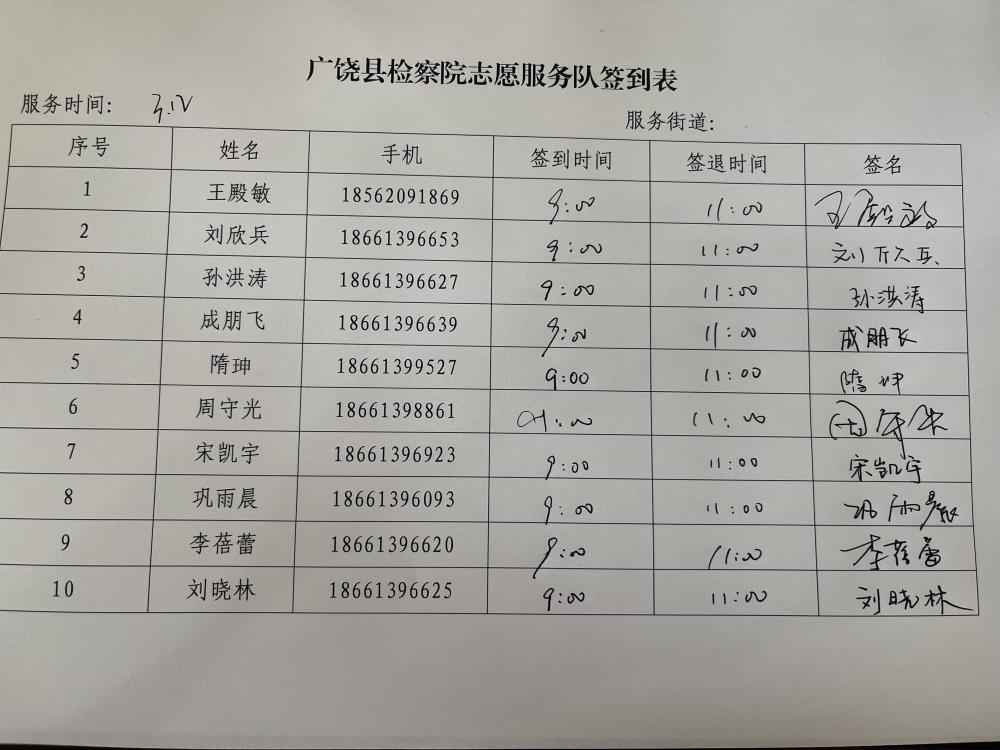 广饶县检察院志愿服务队签到表
服务时间: 3.12
服务街道:
序号 姓名 手机 签到时间 签退时间 签名
1 王殿敏 18562091869 9:00 11:00 王殿敏
2 刘欣兵 18661396653 9:00 11:00 刘欣兵
3 孙洪涛 18661396627 9:00 11:00 孙洪涛
4 成朋飞 18661396639 9:00 11:00 成朋飞
5 隋珅 18661399527 9:00 11:00 隋珅
6 周守光 18661398861 9:00 11:00 周守光
7 宋凯宇 18661396923 9:00 11:00 宋凯宇
8 巩雨晨 18661396093 9:00 11:00 巩雨晨
9 李蓓蕾 18661396620 9:00 11:00 李蓓蕾
10 刘晓林 18661396625 9:00 11:00 刘晓林